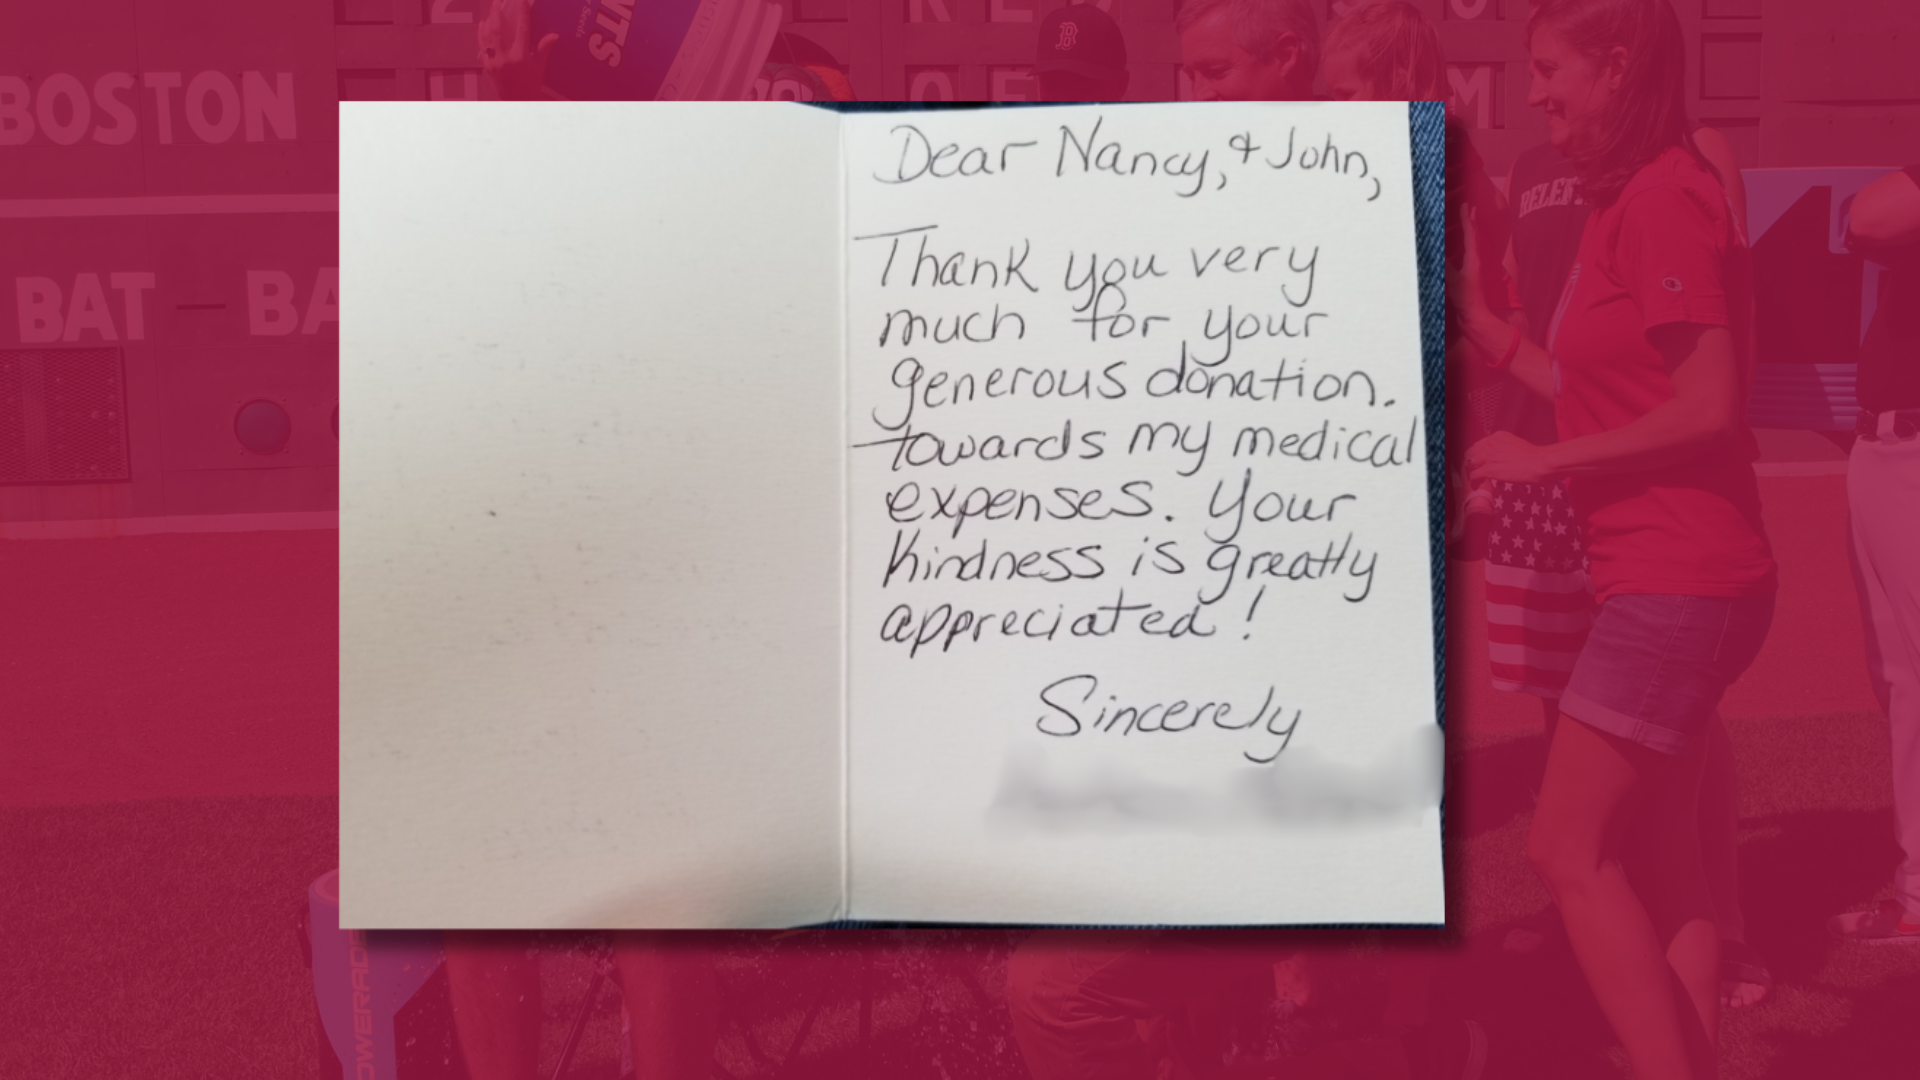 BOSTON
BAT
B
Dear Nancy, & John,
Thank you very
much for your
generous donation.
towards my medical
expenses. Your
kindness is greatly
appreciated!
Sincerely